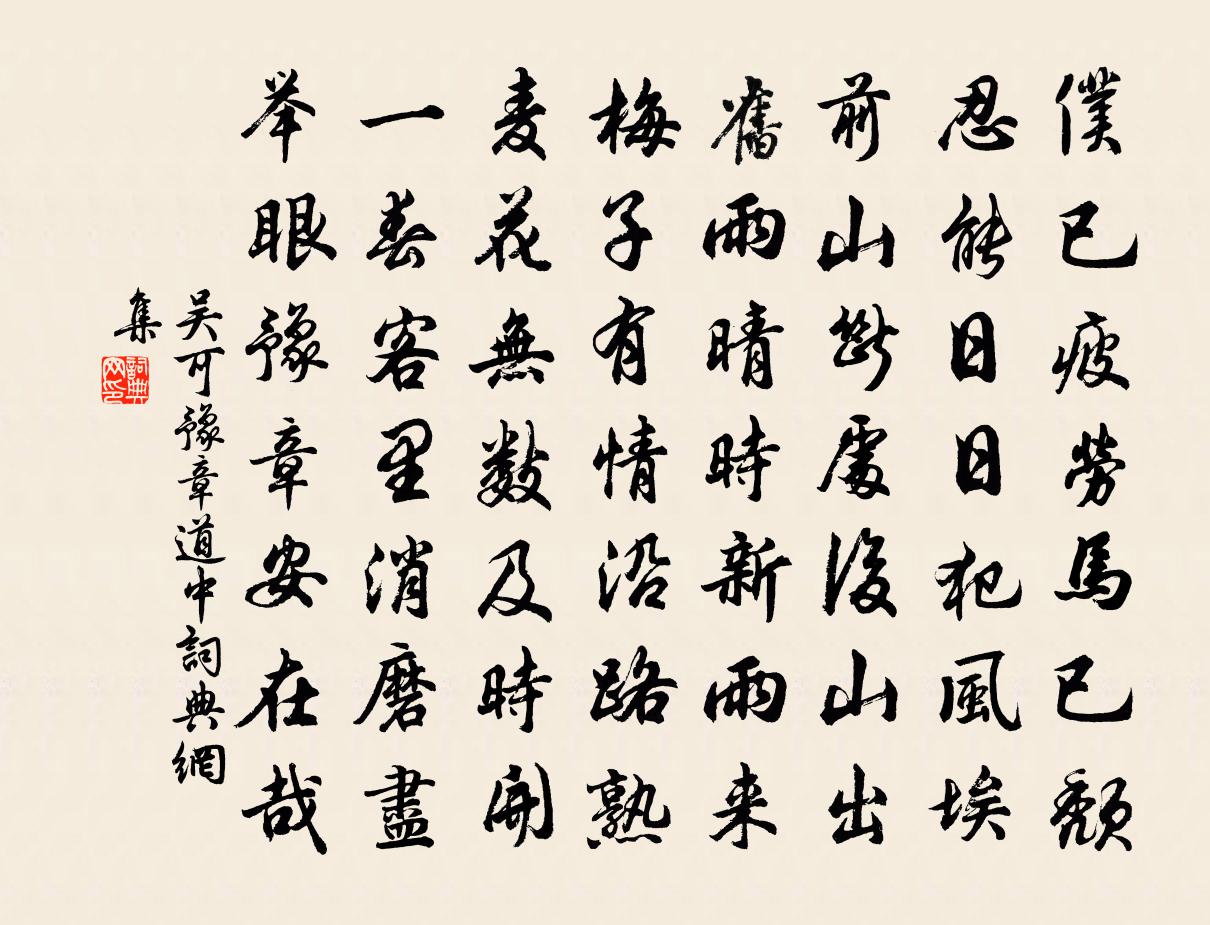 僕已疲勞馬已頽
忍能日日犯風埃
前山斷處後山出
舊雨晴時新雨来
梅子有情沿路熟
麦花無数及時開
一春客里消磨盡
举眼豫章安在哉
吴可豫章道中詞典網
集
詞典
网印